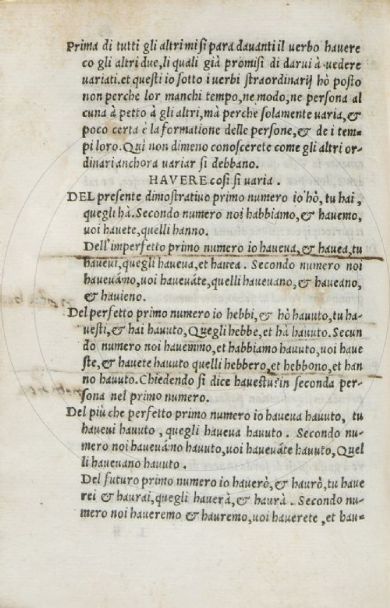 Prima di tutti gli altri mi si para davanti il verbo havere
co gli altri due, li quali già promisi di darui à vedere
variati. et questi io sotto i verbi straordinarij hò posto
non perche lor manchi tempo, ne modo, ne persona al
cuna à petto à gli altri, mà perche solamente varia, &
poco certa è la formatione delle persone, & de i tem-
pi loro. Qui non dimeno conoscerete come gli altri or-
dinari anchora variar si debbano.
HAVERE così si varia.
DEL presente dimostrativo primo numero io hò, tu hai,
quegli hà. Secondo numero noi habbiamo, & havemo,
voi havete, quelli hanno.
Dell'imperfetto primo numero io haveva, & havea, tu
havevi, quegli haveva, et havea. Secondo numero noi
havevámo, voi haveváte, quelli havevano, & haveano,
& havieno.
Del perfetto primo numero io hebbi, & hò havuto, tu ha-
vesti, & hai havuto, Quegli hebbe, et hà havuto. Secun
do numero noi havemmo, et habbiamo havuto, voi have
ste, & havete havuto quelli hebbero, et hebbono, et han
no havuto. Chiedendo si dice havestu? in seconda per-
sona nel primo numero.
Del più che perfetto primo numero io haveva havuto, tu
havevi havuto, quegli haveva havuto. Secondo nu-
mero noi havevámo havuto, voi haveváte havuto, Quel
li havevano havuto.
Del futuro primo numero io haverò, & havrò, tu have
rei & havrai, quegli haverà, & havrà. Secondo nu-
mero noi haveremo & havremo, voi haverete, et hav-